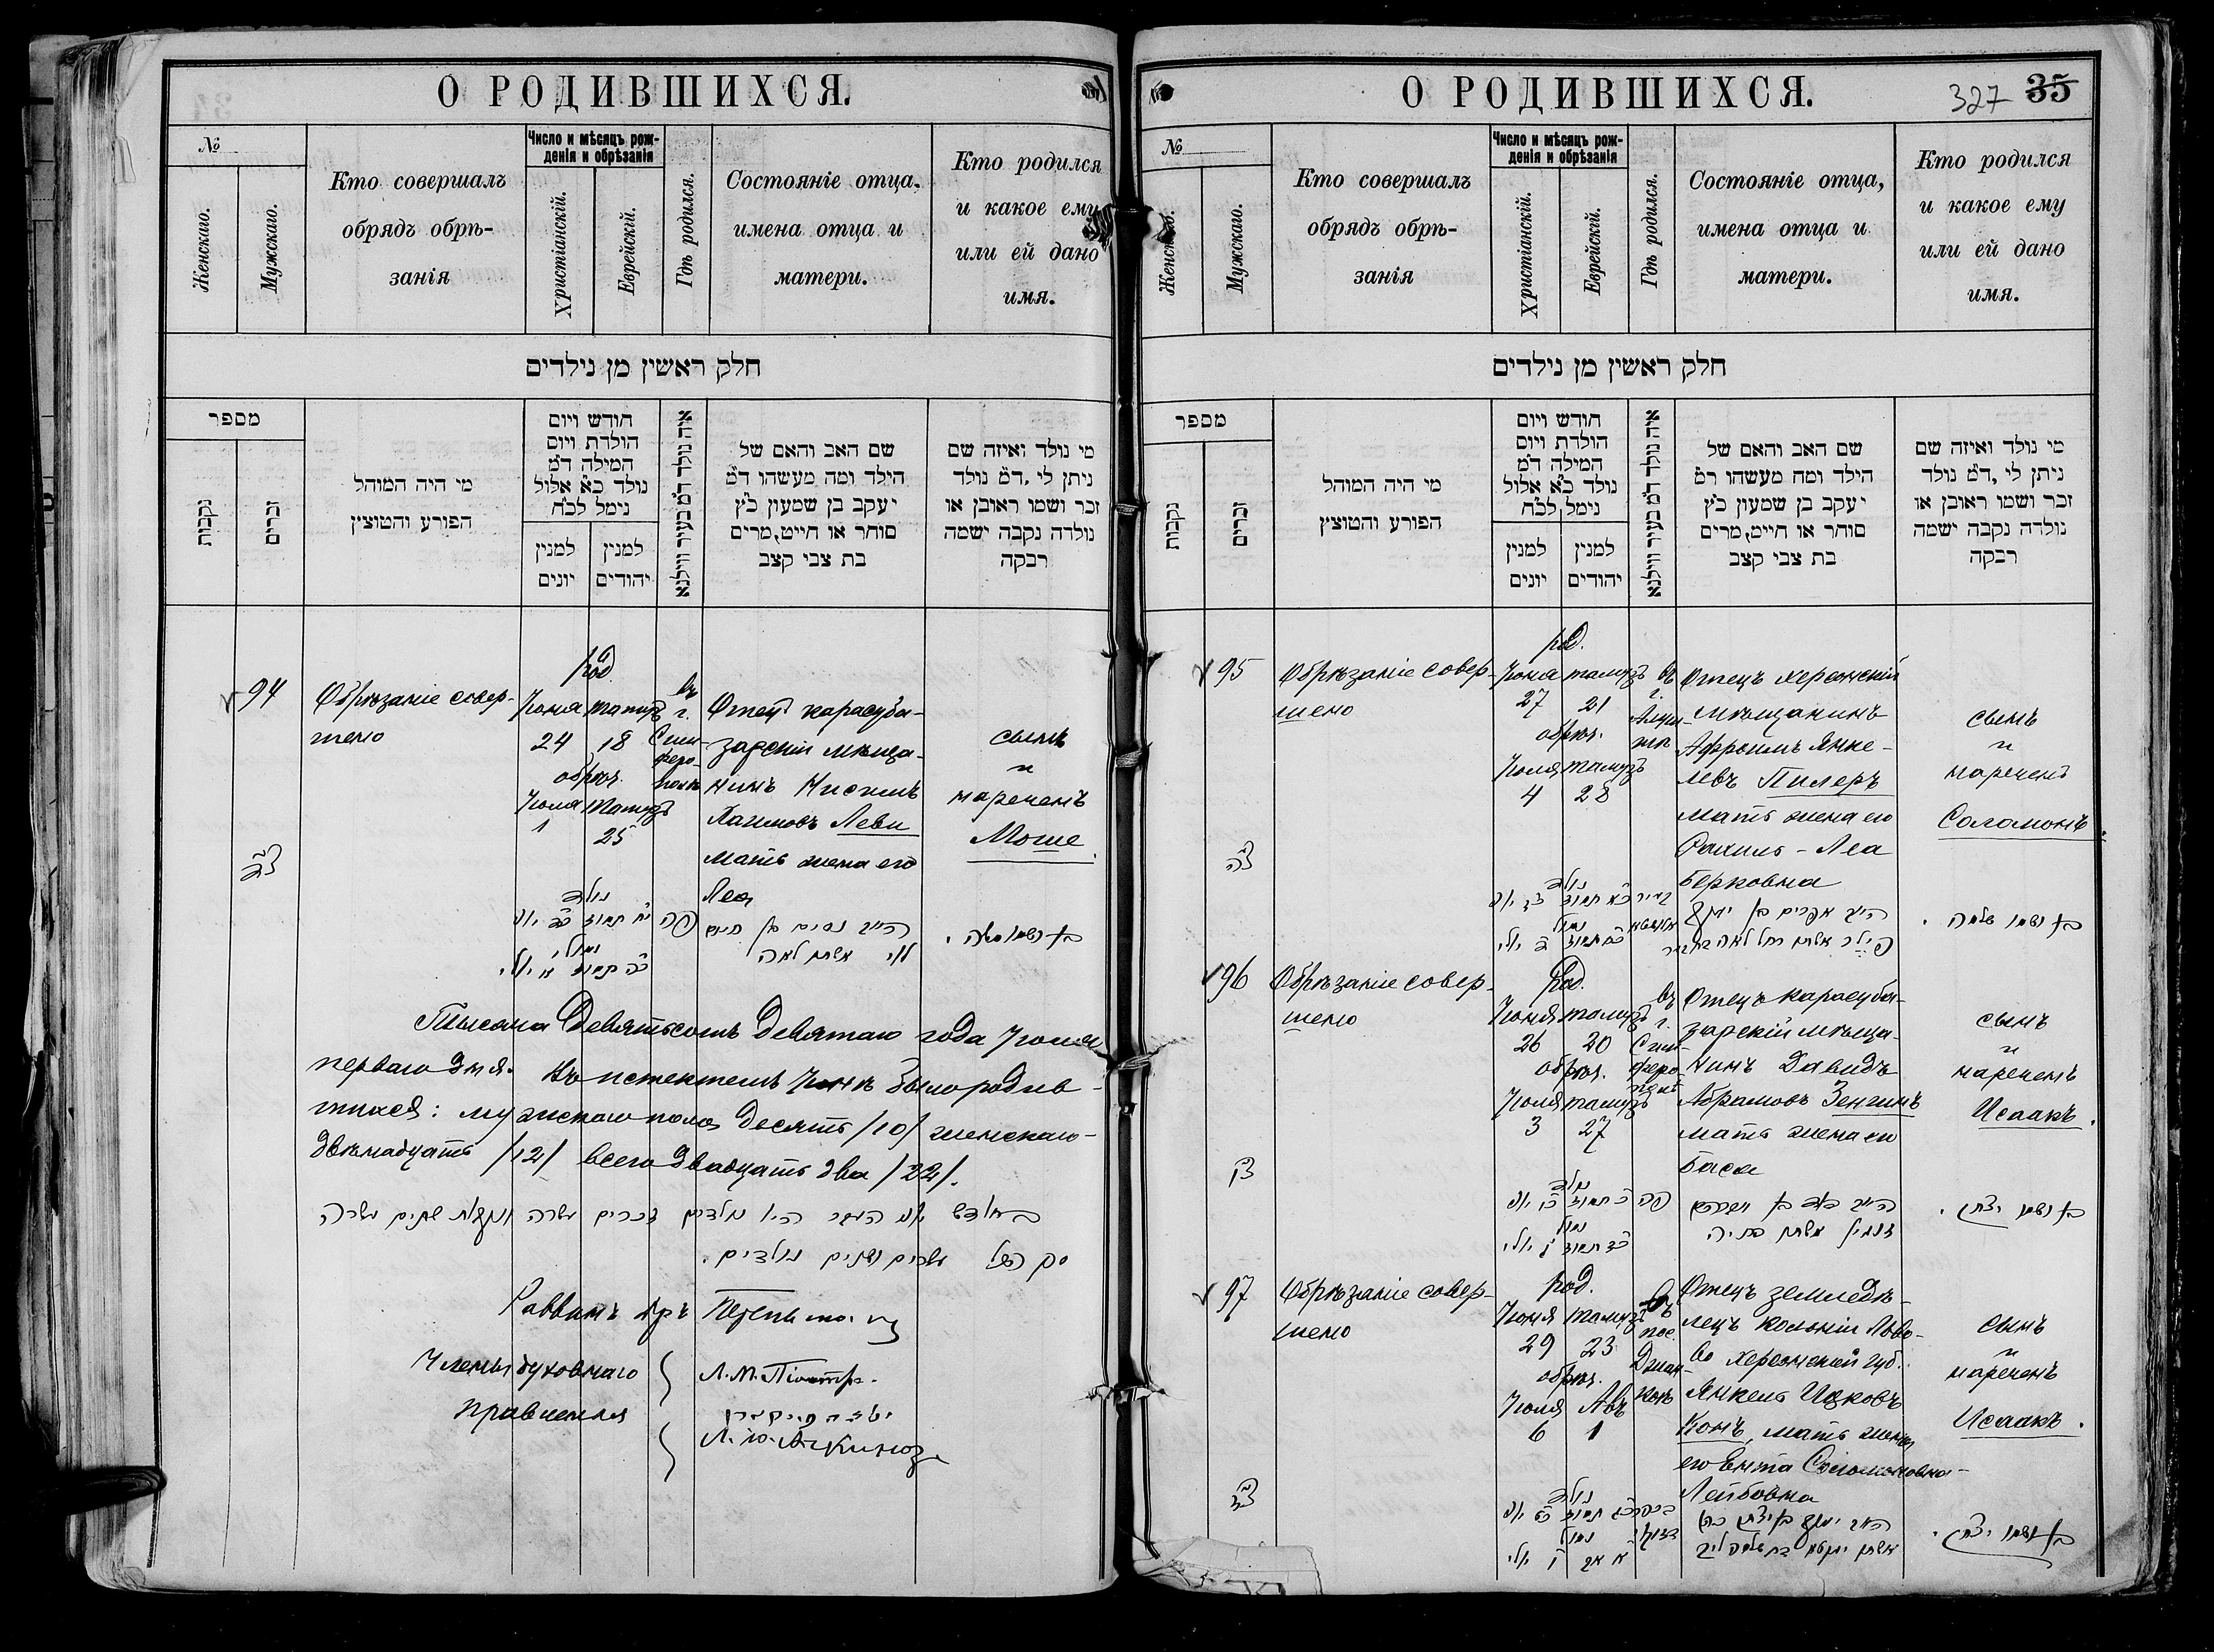 О РОДИВШИХСЯ.
№
Женскаго.
Мужскаго.
Кто совершалъ
обрядъ обрѣ-
занія
Число и мѣсяцъ рож-
денія и обрѣзанія
Христіанскій.
Еврейскій.
Гдѣ родился.
Состояніе отца,
имена отца и
матери.
Кто родился
и какое ему
или ей дано
имя.
חלק ראשין מן נילדים
מספר
נקבות
זכרים
מי היה המוהל
הפורע והמוצץ
חודש ויום
הולדת ויום
המילה ד״מ
נולד כ״א אלול
נימל לכ״ח
למנין
יונים
למנין
יהודים
איה נולד ד״מ בעיר ווילנא
שם האב והאם של
הילד ומה מעשהו ד״מ
יעקב בן שמעון כ״ץ
סוחר או חייט, מרים
בת צבי קצב
מי נולד ואיזה שם
ניתן לי, ד״מ נולד
זכר ושמו ראובן או
נולדה נקבה ישמה
רבקה
94
Обрѣзаніе совер-
шено
род.
Іюня тамузъ
24 18
обрѣз.
Іюля тамузъ
1 25
въ
г.
Сим-
феро-
полѣ
Отецъ карасуба-
зарскій мѣща-
нинъ Нисимъ
Хаимовъ Леви
мать жена его
Леа
сынъ
и
нареченъ
Моше
צד
נולד
י״ח תמוז כ״ד יוני
נמול
כ״ה תמוז א יולי
פה
ה״ר נסים בן חיים
לוי אשתו לאה
בן ושמו משה.
Тысяча девятьсотъ девятаго года Іюля
перваго дня. Въ истекшемъ Іюнѣ было родив-
шихся: мужскаго пола десять /10/ женскаго-
двѣнадцать /12/ всего двадцать два /22/.
בחודש יוני העבר היו נולדים זכרים עשרה ונקבות שתים עשרה
סך הכל עשרים ושנים נולדים.
Раввинъ
Члены духовнаго
правленія
О РОДИВШИХСЯ.
327 35
№
Женскаго.
Мужскаго.
Кто совершалъ
обрядъ обрѣ-
занія
Число и мѣсяцъ рож-
денія и обрѣзанія
Христіанскій.
Еврейскій.
Гдѣ родился.
Состояніе отца,
имена отца и
матери.
Кто родился
и какое ему
или ей дано
имя.
חלק ראשין מן נילדים
מספר
נקבות
זכרים
מי היה המוהל
הפורע והמוצץ
חודש ויום
הולדת ויום
המילה ד״מ
נולד כ״א אלול
נימל לכ״ח
למנין
יונים
למנין
יהודים
איה נולד ד״מ בעיר ווילנא
שם האב והאם של
הילד ומה מעשהו ד״מ
יעקב בן שמעון כ״ץ
סוחר או חייט, מרים
בת צבי קצב
מי נולד ואיזה שם
ניתן לי, ד״מ נולד
זכר ושמו ראובן או
נולדה נקבה ישמה
רבקה
95
Обрѣзаніе совер-
шено
род.
Іюня тамузъ
27 21
обрѣз.
Іюля тамузъ
4 28
въ
г.
Алуш-
тѣ
Отецъ херсонскій
мѣщанинъ
Афроимъ Янке-
левъ Пилеръ
мать жена его
Рахиль-Леа
Берковна
сынъ
и
нареченъ
Соломонъ.
צה
נולד
כ״א תמוז כ״ז יוני
נמול
כ״ח תמוז ד יולי
בעיר
אלושטא
ה״ר אפרים בן יעקב
פילר אשתו רחל לאה
בן ושמו שלמה.
96
Обрѣзаніе совер-
шено
род.
Іюня тамузъ
26 20
обрѣз.
Іюля тамузъ
3 27
въ
г.
Сим-
феро-
полѣ
Отецъ карасуба-
зарскій мѣща-
нинъ Давидъ
Абрамовъ Зенгинъ
мать жена его
Бася
сынъ
и
нареченъ
Исаакъ.
צו
נולד
כ תמוז כ״ו יוני
נמול
כ״ז תמוז ג יולי
פה
ה״ר דוד בן אברהם
זנגין אשתו בתיה
בן ושמו יצחק.
97
Обрѣзаніе совер-
шено
род.
Іюня тамузъ
29 23
обрѣз.
Іюля Авъ
6 1
въ
пос.
Джан-
коѣ
Отецъ земледѣ-
лецъ колоніи Льво-
во Херсонской губ.
Янкель Ицковъ
Конъ, мать жена
его Ента Соломоновна-
Лейбовна
сынъ
и
нареченъ
Исаакъ.
צז
נולד
כ״ג תמוז כ״ט יוני
נמול
א אב ו יולי
ה״ר יעקב בן יצחק כהן
אשתו יענטא בת שלמה ליב
בן ושמו יצחק.